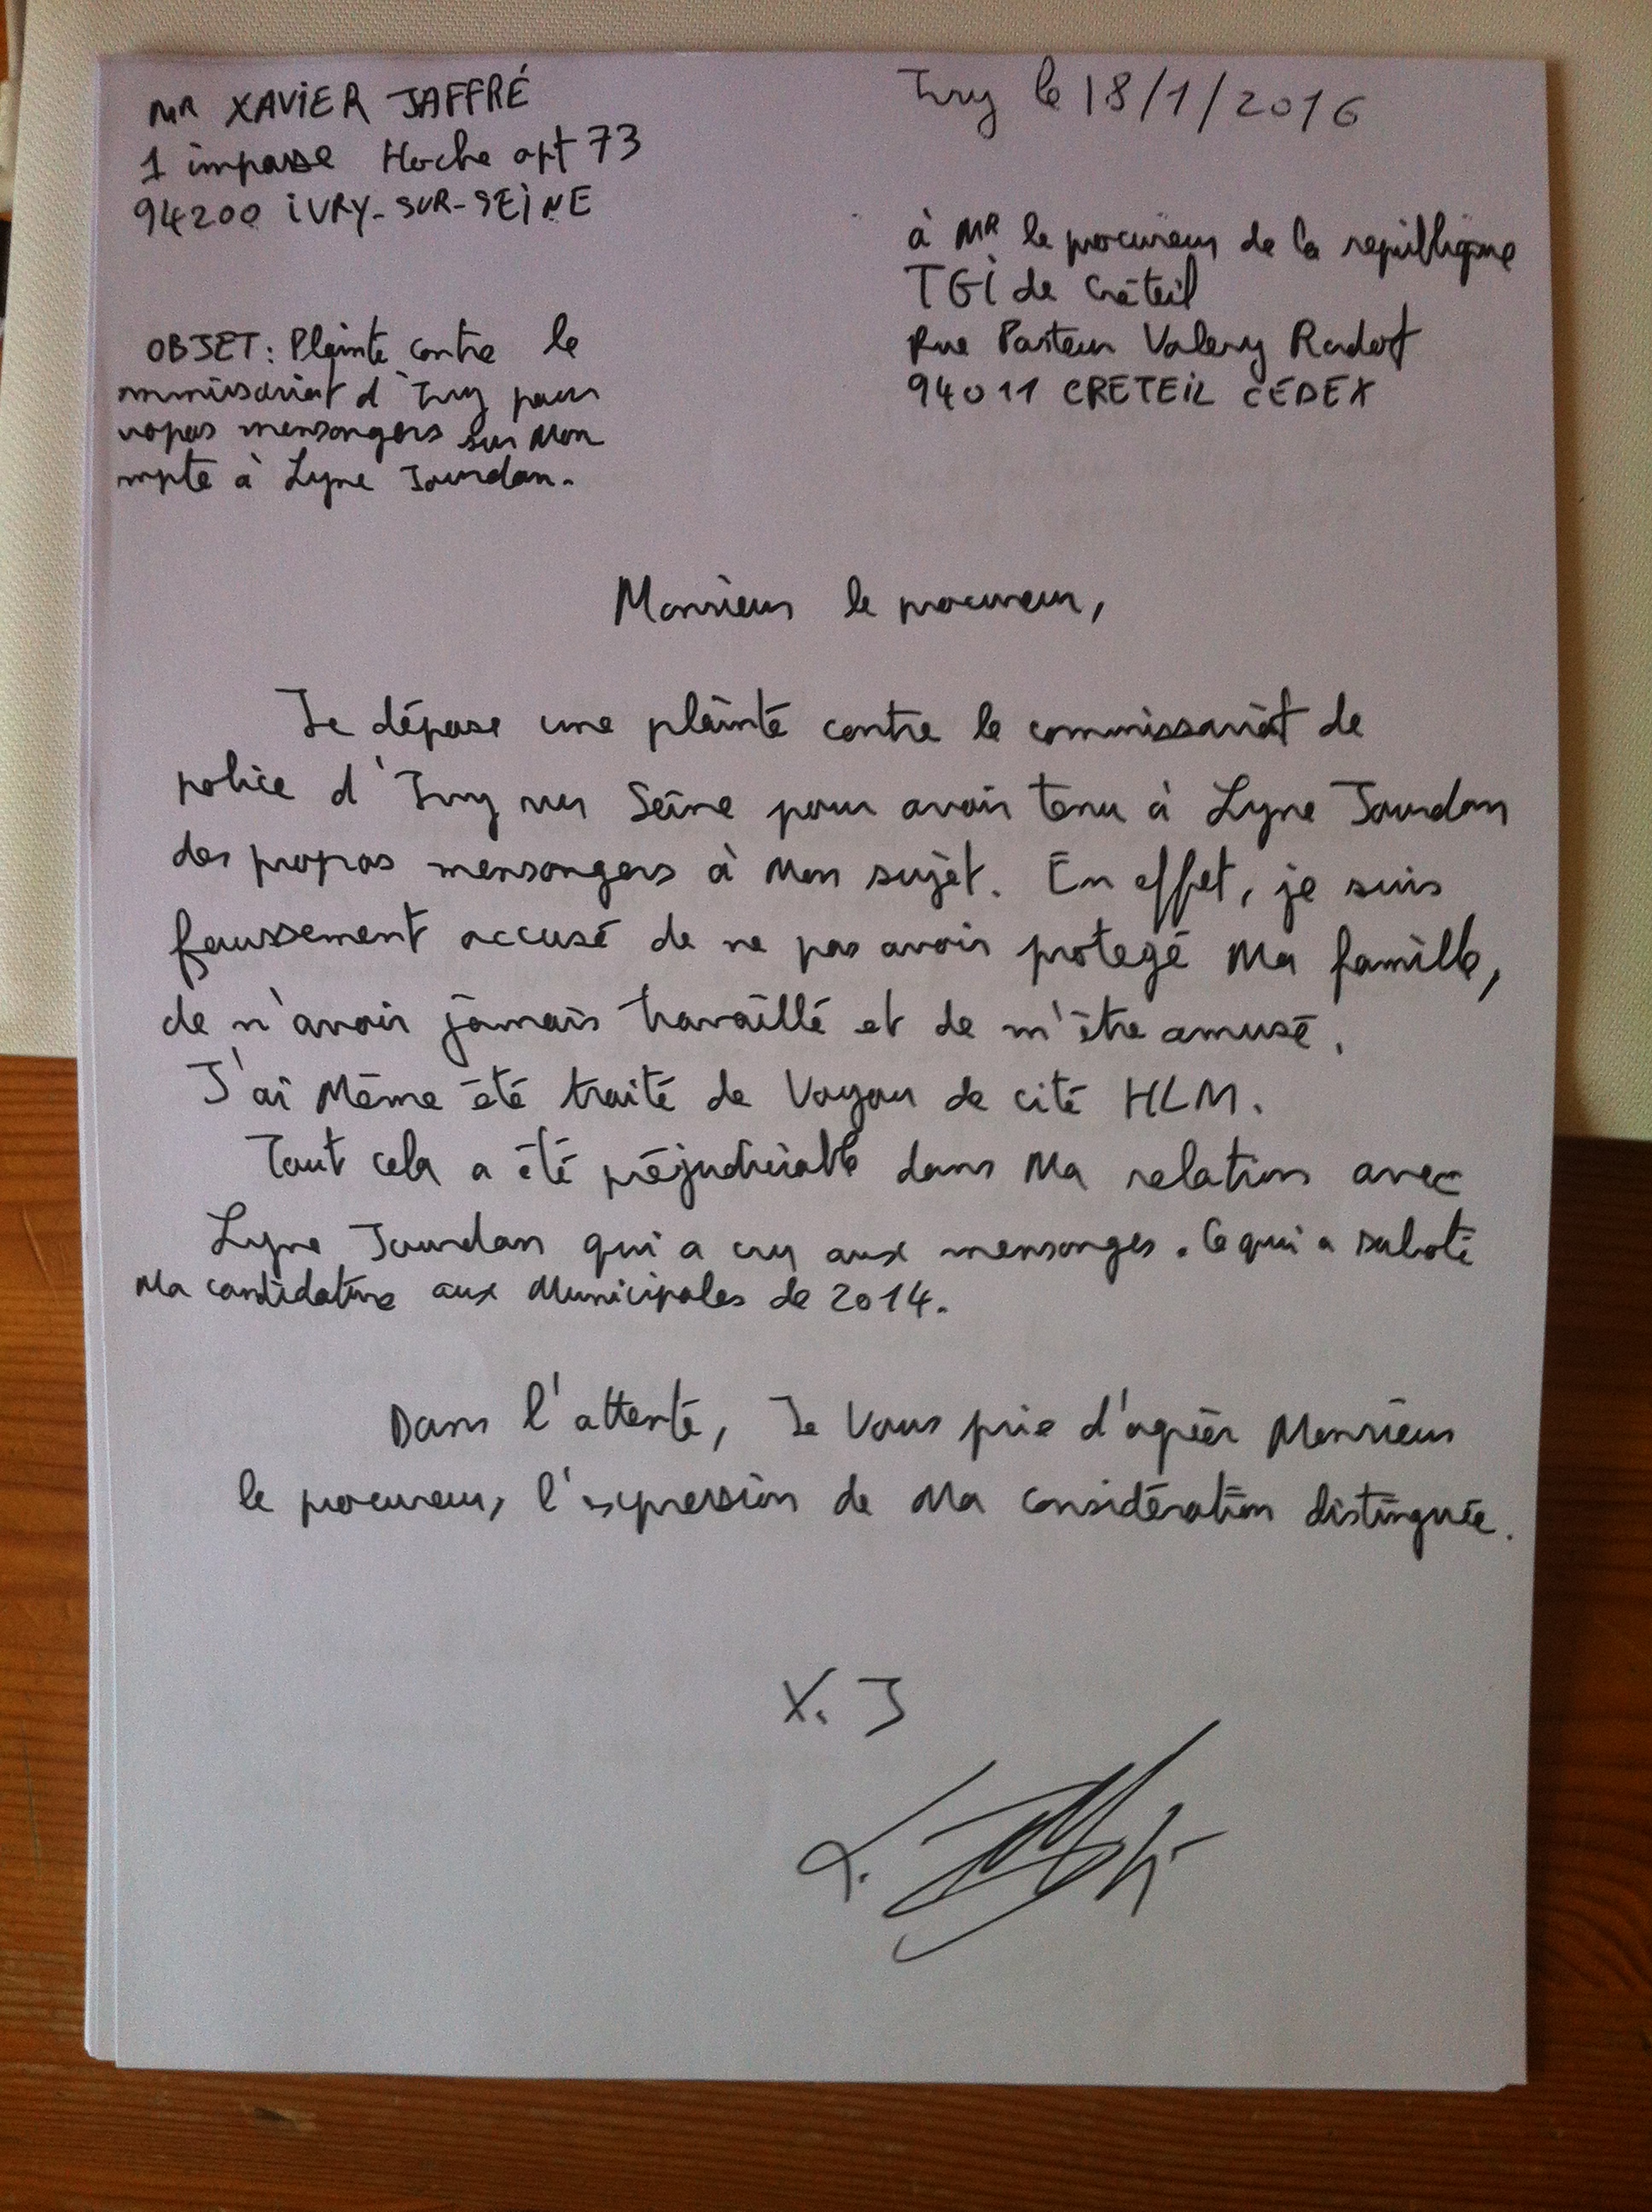 MR XAVIER JAFFRÉ
1 impasse Hoche apt 73
94200 IVRY-SUR-SEINE
Ivry le 18/1/2016
à MR le procureur de la republique
TGI de Créteil
Rue Pasteur Valery Radot
94011 CRETEIL CÉDEX
OBJET: Plainte contre le
mmissariat d'Ivry pour
ropos mensongers sur Mon
mpte à Lyne Jourdan.
Monsieur le procureur,
Je dépose une plainte contre le commissariat de
police d'Ivry sur Seine pour avoir tenu à Lyne Jourdan
des propos mensongers à Mon sujet. En effet, je suis
faussement accusé de ne pas avoir protegé Ma famille,
de n'avoir jamais travaillé et de m'être amusé.
J'ai Même été traité de Voyou de cité HLM.
Tout cela a été préjudiciable dans Ma relation avec
Lyne Jourdan qui a cru aux mensonges. Ce qui a saboté
Ma candidature aux Municipales de 2014.
Dans l'attente, Je Vous prie d'agréer Monsieur
le procureur, l'expression de Ma considération distinguée.
X. J